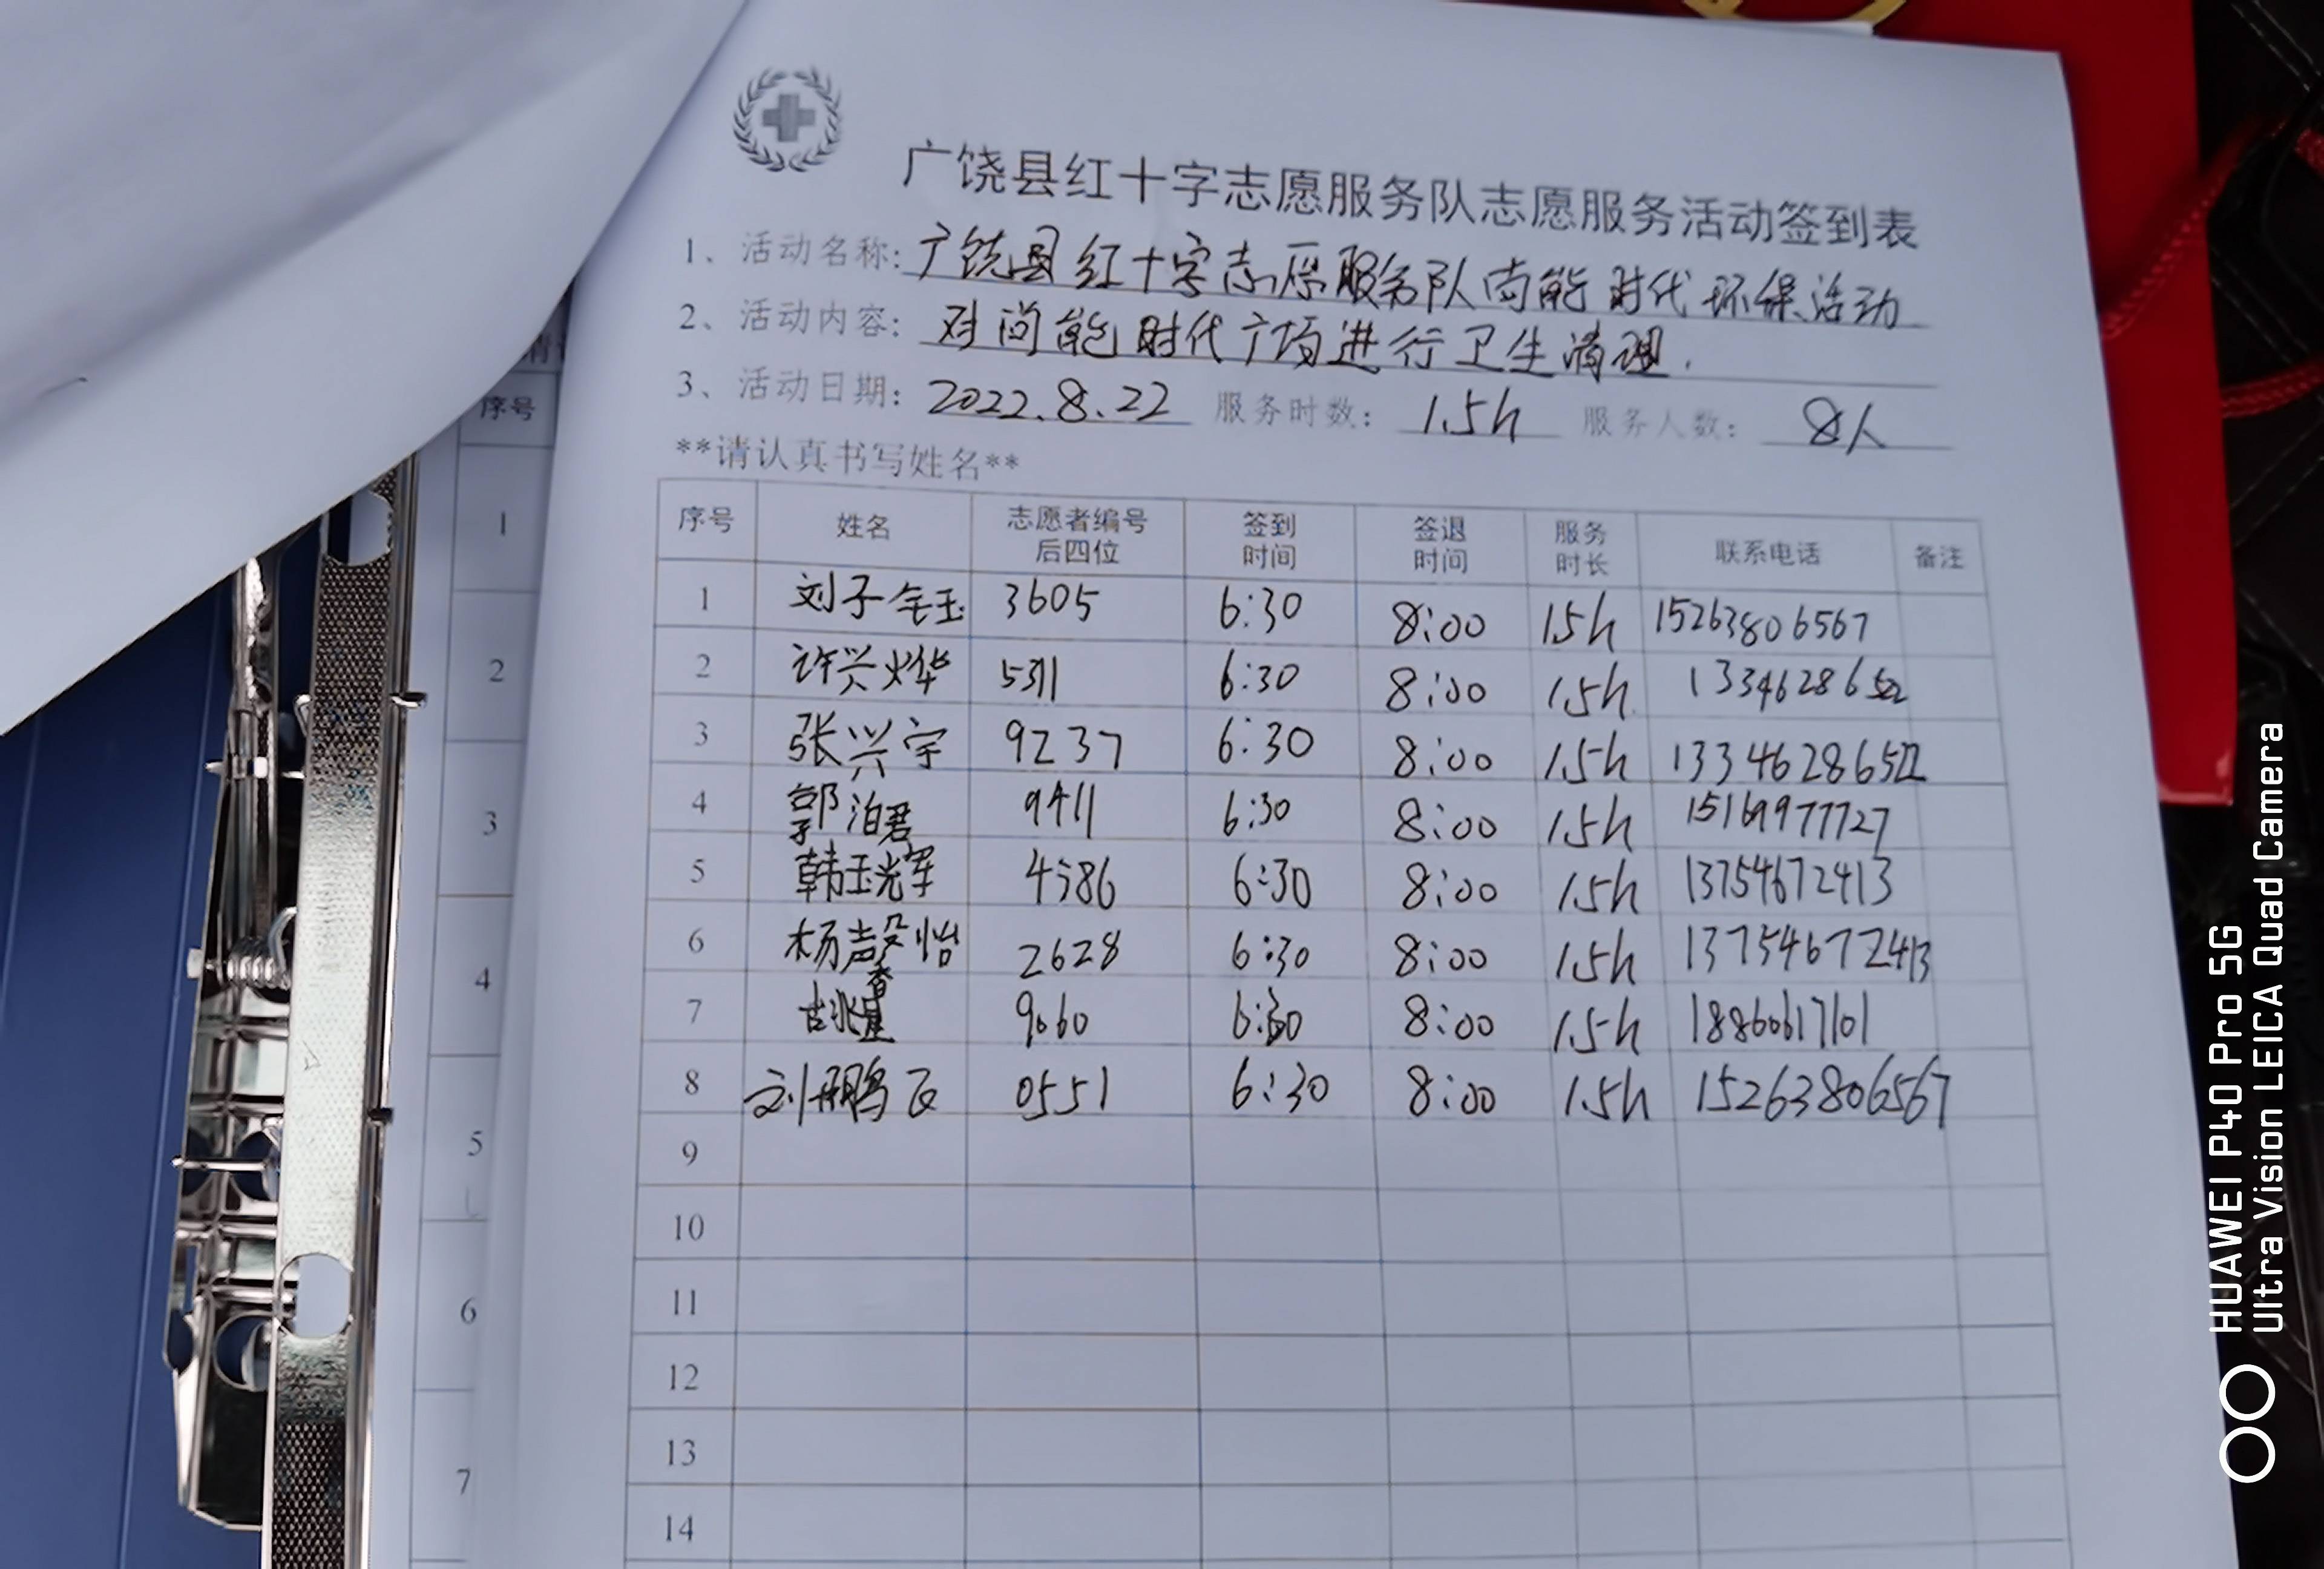 广饶县红十字志愿服务队志愿服务活动签到表
1、活动名称: 广饶县红十字志愿服务队尚能时代环保活动
2、活动内容: 对尚能时代广场进行卫生清理.
3、活动日期: 2022.8.22 服务时数: 1.5h 服务人数: 8人
**请认真书写姓名**
序号 姓名 志愿者编号后四位 签到时间 签退时间 服务时长 联系电话 备注
1 刘子钰 3605 6:30 8:00 1.5h 15263806567
2 许兴烨 5311 6:30 8:00 1.5h 13346286522
3 张兴宇 9237 6:30 8:00 1.5h 13346286522
4 郭泊君 9411 6:30 8:00 1.5h 15169977727
5 韩玉辉 4586 6:30 8:00 1.5h 13754672413
6 杨馨怡 2628 6:30 8:00 1.5h 13754672413
7 9060 6:30 8:00 1.5h 18860617101
8 刘鹏飞 0551 6:30 8:00 1.5h 15263806567
9
10
11
12
13
14
序号
1
2
3
4
5
6
7
HUAWEI P40 Pro 5G
Ultra Vision LEICA Quad Camera